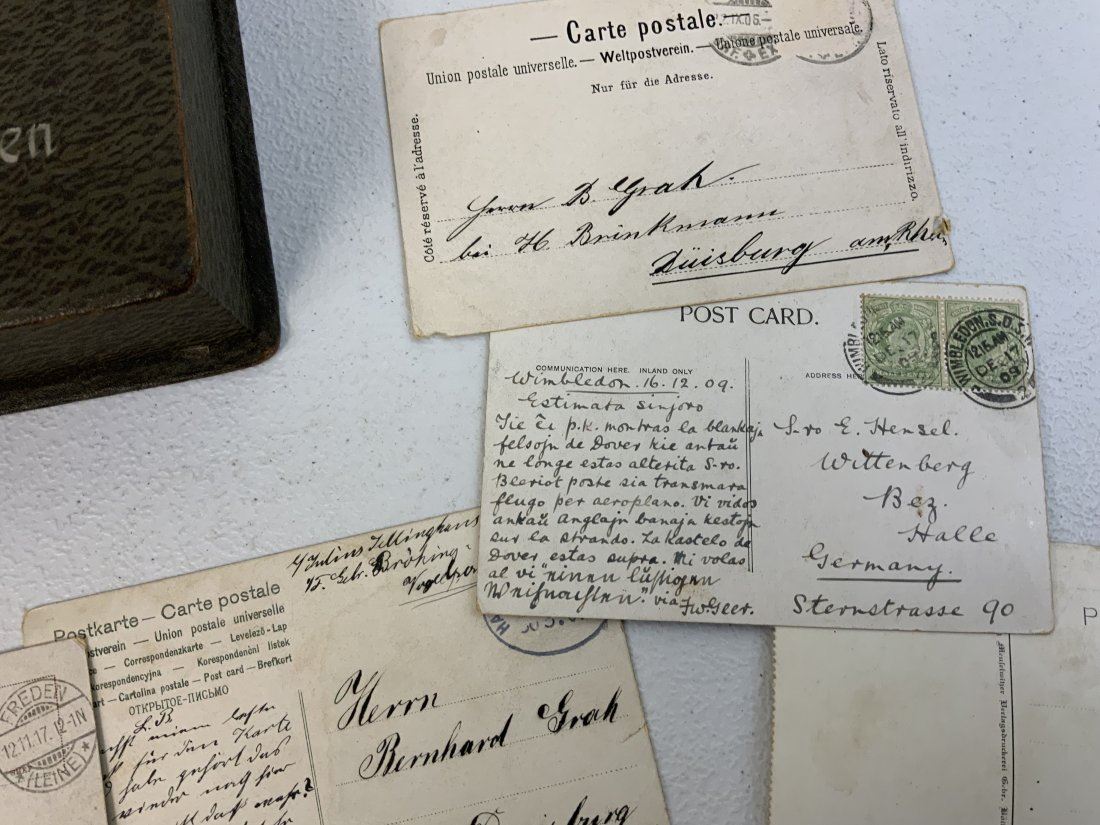 en
Carte postale.
Union postale universelle. — Weltpostverein. — Unione postale universale.
Nur für die Adresse.
Côté réservé à l'adresse.
Lato riservato all' indirizzo.
IX.06.
Herrn B. Grah.
bei H Brinkmann
Düisburg am Rhein
POST CARD.
COMMUNICATION HERE. INLAND ONLY
ADDRESS HE
WIMBLEDON.S.O.
12.15 AM
DE 17
09
Wimbledon. 16.12.09.
Estimata sinjoro
Tie ĉi p.k. montras la blankajn
felsojn de Dover kie antaŭ
ne longe estas alterita S-ro.
Bleriot poste sia transmara
flugo per aeroplano. Vi vidos
ankaŭ Anglajn banajn kestojn
sur la strando. La Kastelo de
Dover estas supra. Mi volas
al vi "einen lustigen
Weihnachten". via
S-ro E. Hensel.
Wittenberg
Bez.
Halle
Germany.
Sternstrasse 90
Postkarte — Carte postale
stverein — Union postale universelle
e — Correspondenzkarte — Levelező-Lap
korespondencyjna — Korespondenční listek
art — Cartolina postale — Post card — Brefkort
ОТКРЫТОЕ-ПИСЬМО
Julius
Gebr. Bröking
L. B
für den Karte
habe gehört das
wieder nach hier
Herrn
Bernhard Grah
FREDEN
12.11.17.12-1N
(LEINE)
P
Meuselwitzer Verlagsdruckerei Gebr.